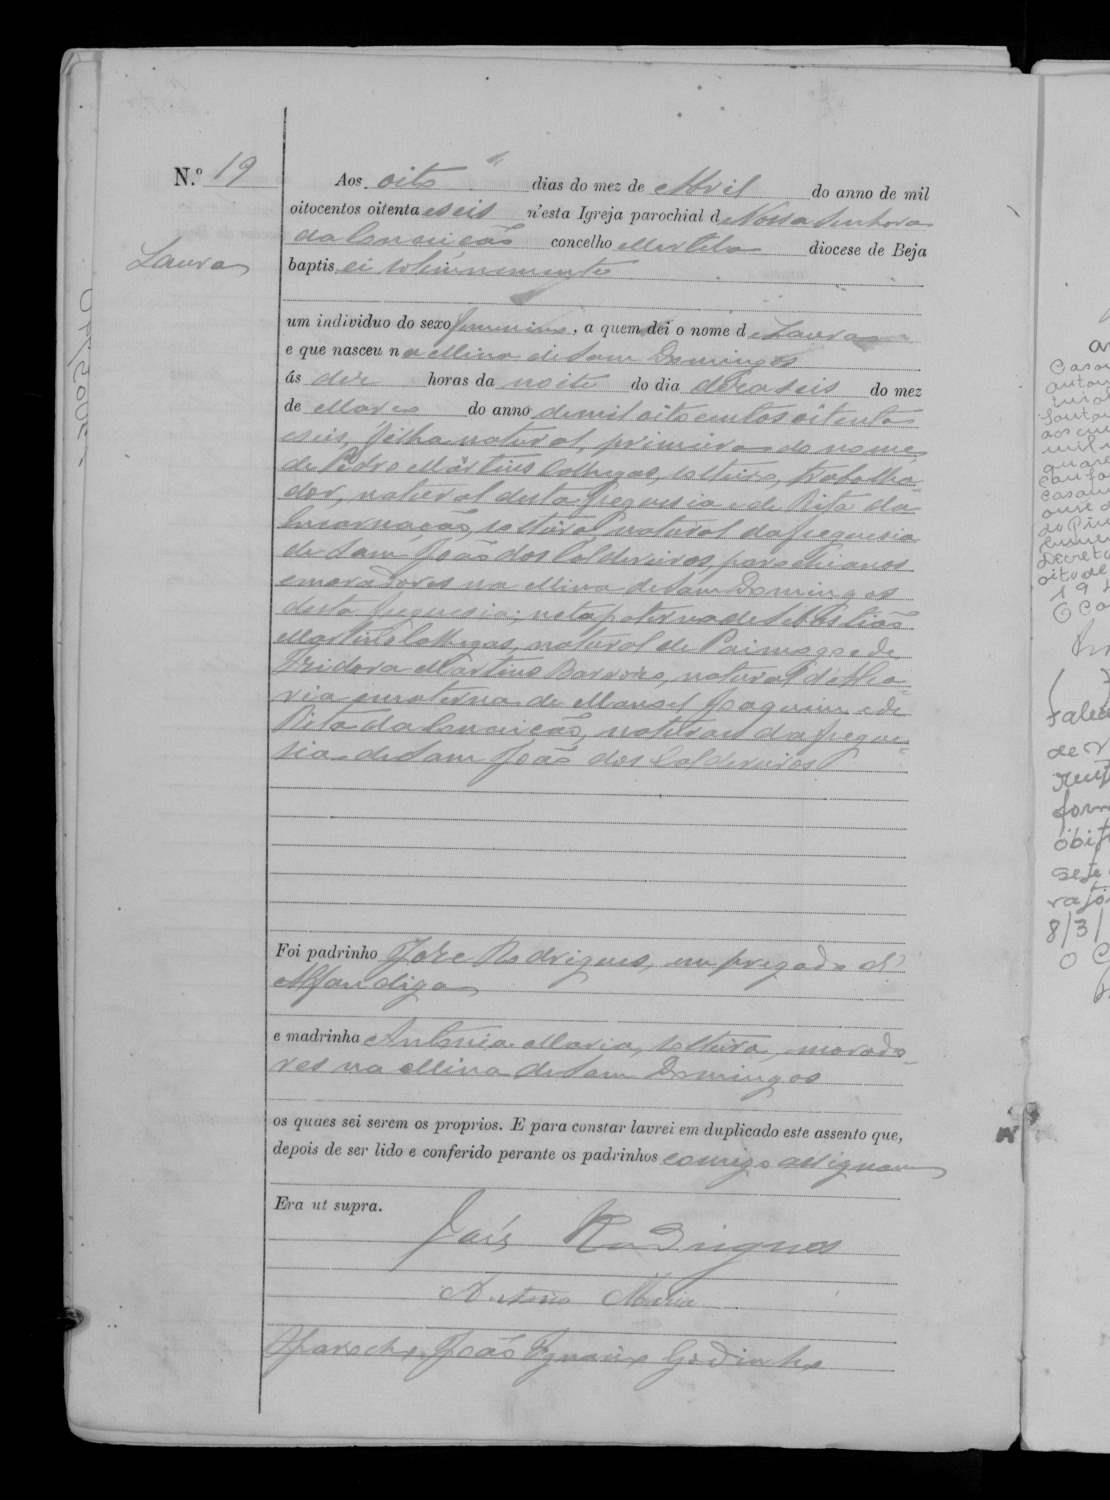 N.º 19
Laura
Aos oito dias do mez de Abril do anno de mil
oitocentos oitenta e seis n'esta Igreja parochial de Nossa Senhora
da Conceição concelho Mertola diocese de Beja
baptisei solemnemente
um individuo do sexo femenino, a quem dei o nome de Laura
e que nasceu na Mina de Sam Domingos
ás dez horas da noite do dia dezaseis do mez
de Março do anno de mil oito centos oitenta
e seis, filha natural, primeira do nome
de Pedro Martins Colhegas, solteiro, trabalha-
dor, natural desta freguesia e de Rita da
Encarnação, solteira, natural da freguesia
de Sam João dos Caldeireiros, parochianos
e moradores na Mina de Sam Domingos
desta freguesia; neta paterna de Sebastião
Martins Colhegas, natural de e de
Izidora Martins Barroso, natural
ria e materna de Manoel Joaquim e de
Rita da Conceição, naturaes da fregue-
sia de Sam João dos Caldeireiros
Foi padrinho Jose Rodrigues, empregado d'
Alfandiga
e madrinha Antonia Maria, solteira, morado-
res na Mina de Sam Domingos
os quaes sei serem os proprios. E para constar lavrei em duplicado este assento que,
depois de ser lido e conferido perante os padrinhos comigo assignam
Era ut supra.
José Rodrigues
Antonia Maria
O Parocho, João Ignacio Godinho
falec
de
form
óbi
sete
8/3/